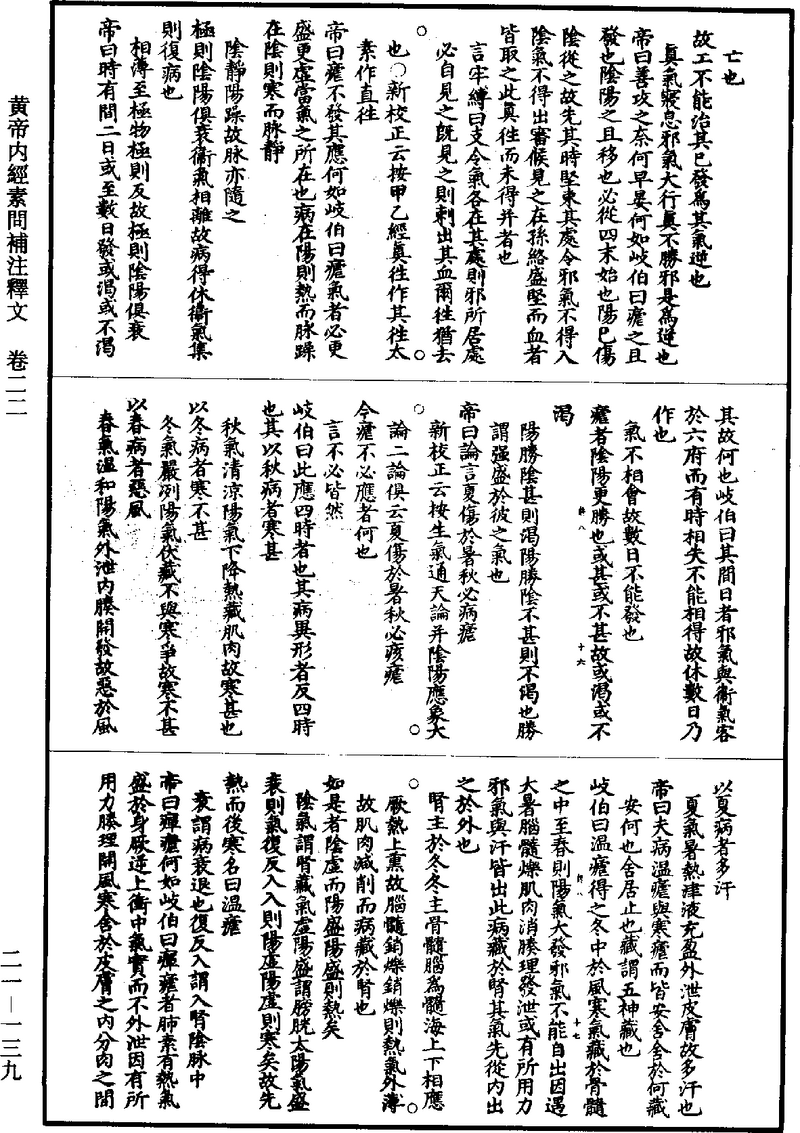 黄帝内經素問補注釋文　卷二二
亡也
故工不能治其已發爲其氣逆也
眞氣寢息邪氣大行眞不勝邪是爲逆也
帝曰善攻之奈何早晏何如岐伯曰瘧之且
發也陰陽之且移也必從四末始也陽巳傷
陰從之故先其時堅束其處令邪氣不得入
陰氣不得出審候見之在孫絡盛堅而血者
皆取之此眞徃而未得并者也
言牢縛曰支令氣各在其處則邪所居處
必自見之既見之則刺出其血爾徃猶去
也○新校正云按甲乙經眞徃作其徃太
素作直徃
帝曰瘧不發其應何如岐伯曰瘧氣者必更
盛更虛當氣之所在也病在陽則熱而脉躁
在陰則寒而脉靜
陰靜陽躁故脉亦隨之
極則陰陽俱衰衞氣相離故病得休衞氣集
則復病也
相薄至極物極則反故極則陰陽俱衰
帝曰時有間二日或至數日發或渴或不渴
其故何也岐伯曰其間日者邪氣與衞氣客
於六府而有時相失不能相得故休數日乃
作也
氣不相會故數日不能發也
瘧者陰陽更勝也或甚或不甚故或渴或不
渴
陽勝陰甚則渴陽勝陰不甚則不渴也勝
謂强盛於彼之氣也
帝曰論言夏傷於暑秋必病瘧
新校正云按生氣通天論并陰陽應象大
論二論俱云夏傷於暑秋必痎瘧
今瘧不必應者何也
言不必皆然
岐伯曰此應四時者也其病異形者反四時
也其以秋病者寒甚
秋氣清涼陽氣下降熱藏肌肉故寒甚也
以冬病者寒不甚
冬氣嚴冽陽氣伏藏不與寒爭故寒不甚
以春病者惡風
春氣溫和陽氣外泄內腠開發故惡於風
以夏病者多汗
夏氣暑熱津液充盈外泄皮膚故多汗也
帝曰夫病溫瘧與寒瘧而皆安舍舍於何藏
安何也舍居止也藏謂五神藏也
岐伯曰溫瘧得之冬中於風寒氣藏於骨髓
之中至春則陽氣大發邪氣不能自出因遇
大暑腦髓爍肌肉消腠理發泄或有所用力
邪氣與汗皆出此病藏於腎其氣先從內出
之於外也
腎主於冬冬主骨髓腦爲髓海上下相應
厥熱上熏故腦髓銷爍銷爍則熱氣外薄
故肌肉減削而病藏於腎也
如是者陰虛而陽盛陽盛則熱矣
陰氣謂腎藏氣虛陽盛謂膀胱太陽氣盛
衰則氣復反入入則陽虛陽虛則寒矣故先
熱而後寒名曰溫瘧
衰謂病衰退也復反入謂入腎陰脉中
帝曰癉瘧何如岐伯曰癉瘧者肺素有熱氣
盛於身厥逆上衝中氣實而不外泄因有所
用力腠理開風寒舍於皮膚之內分肉之間
二一—一三九